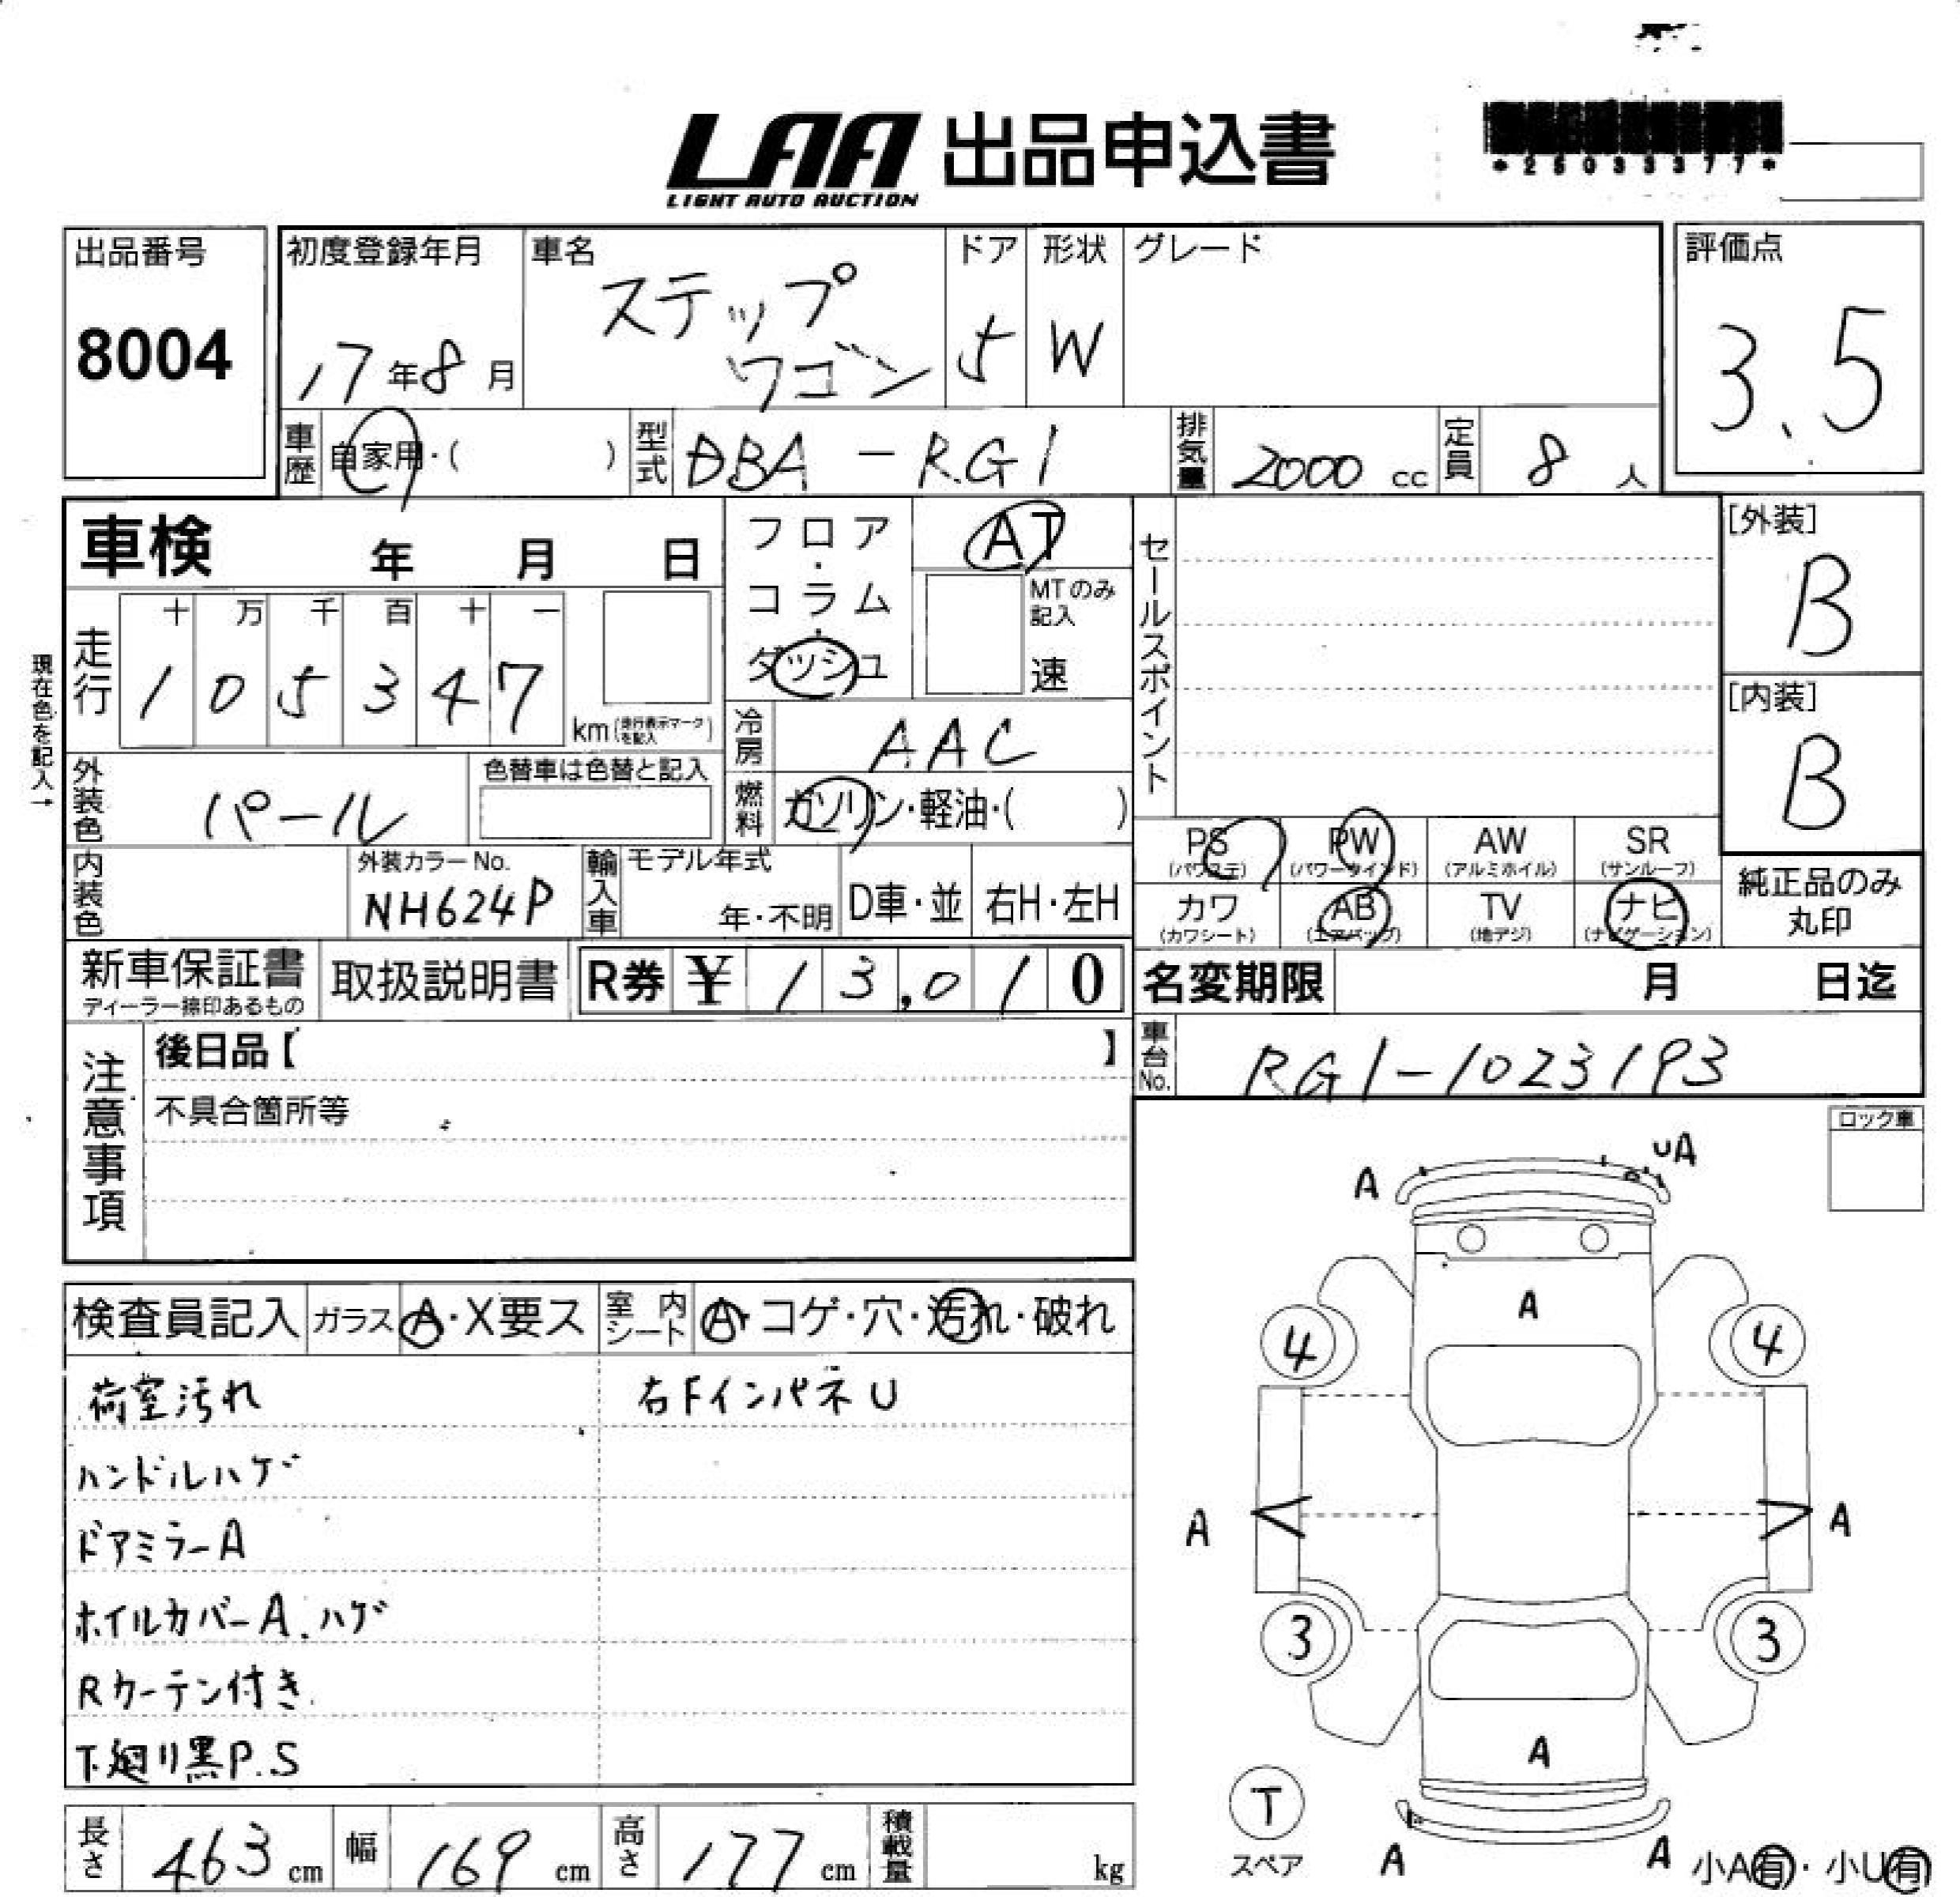 LAA 出品申込書
LIGHT AUTO AUCTION
*25033377*
出品番号
8004
初度登録年月
17年8月
車名
ステップ
ワゴン
ドア
5
形状
W
グレード
評価点
3.5
車歴
自家用・( )
型式
DBA-RG1
排気量
2000 cc
定員
8 人
車検 年 月 日
フロア・コラム・ダッシュ
AT
MTのみ
記入
速
セールスポイント
[外装]
B
[内装]
B
現在色を記入→
走行
十 万 千 百 十 一
1 0 5 3 4 7
km(走行表示マークを記入)
冷房
AAC
外装色
パール
色替車は色替と記入
燃料
ガソリン・軽油・( )
PS
(パワステ)
PW
(パワーウインド)
AW
(アルミホイル)
SR
(サンルーフ)
カワ
(カワシート)
AB
(エアバッグ)
TV
(地デジ)
ナビ
(ナビゲーション)
純正品のみ
丸印
内装色
外装カラーNo.
NH624P
輸入車
モデル年式
年・不明
D車・並
右H・左H
新車保証書
ディーラー捺印あるもの
取扱説明書
R券 ¥ 13,010
名変期限 月 日迄
車台No.
RG1-1023193
注意事項
後日品【 】
不具合箇所等
ロック車
検査員記入
ガラス
A・X要ス
室内シート
A・コゲ・穴・汚れ・破れ
荷室汚れ
右FインパネU
ハンドルハゲ
ドアミラーA
ホイルカバーA.ハゲ
Rカーテン付き
下廻り黒P.S
長さ
463 cm
幅
169 cm
高さ
177 cm
積載量
kg
A
UA
A
4
4
A
A
3
3
A
T
スペア
A
A
小A有・小U有